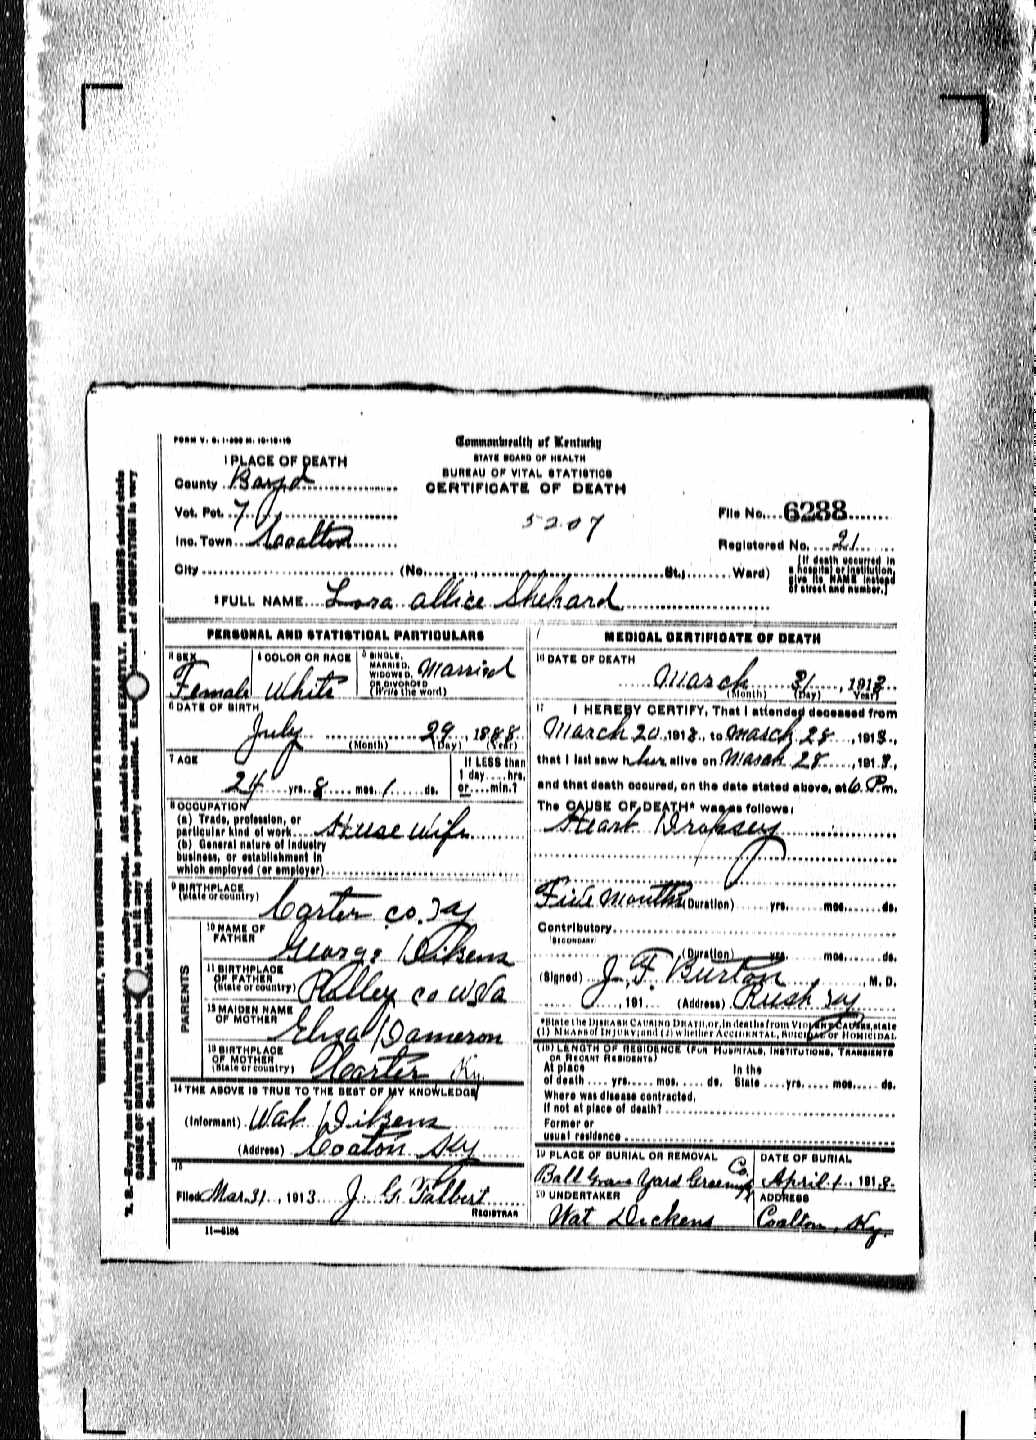 FORM V. S. 1-
Commonwealth of Kentucky
STATE BOARD OF HEALTH
BUREAU OF VITAL STATISTICS
CERTIFICATE OF DEATH
1 PLACE OF DEATH
County Boyd
Vot. Pct. 7
Inc. Town Coalton
5207
File No. 6288
Registered No. 21
City (No. , St.; Ward)
(If death occurred in
a hospital or institution,
give its NAME instead
of street and number.)
2 FULL NAME Lora allice Shehard
PERSONAL AND STATISTICAL PARTICULARS
3 SEX
Female
4 COLOR OR RACE
White
5 SINGLE,
MARRIED,
WIDOWED,
OR DIVORCED
(Write the word)
Married
6 DATE OF BIRTH
July 29, 1888
(Month) (Day) (Year)
7 AGE
24 yrs. 8 mos. 1 ds.
If LESS than
1 day hrs.
or min.?
8 OCCUPATION
(a) Trade, profession, or
particular kind of work House wife
(b) General nature of industry
business, or establishment in
which employed (or employer)
9 BIRTHPLACE
(State or country)
Carter co. Ky
PARENTS
10 NAME OF
FATHER
George Dikens
11 BIRTHPLACE
OF FATHER
(State or country)
co W Va
12 MAIDEN NAME
OF MOTHER
Eliza Dameron
13 BIRTHPLACE
OF MOTHER
(State or country)
Carter Ky.
14 THE ABOVE IS TRUE TO THE BEST OF MY KNOWLEDGE
(Informant) Wat Dikens
(Address) Coaton Ky
15
Filed Mar. 31, 1913 J. G. Talbert
REGISTRAR
11-5184
MEDICAL CERTIFICATE OF DEATH
16 DATE OF DEATH
March 31, 1913
(Month) (Day) (Year)
17 I HEREBY CERTIFY, That I attended deceased from
March 20, 1913, to March 28, 1913,
that I last saw her alive on March 28, 1913,
and that death occured, on the date stated above, at 6 P.m.
The CAUSE OF DEATH* was as follows:
Heart Dropsey
Five Months (Duration) yrs. mos. ds.
Contributory
(SECONDARY)
(Duration) yrs. mos. ds.
(Signed) J. F. Burton, M. D.
, 191 (Address) Rush Ky
*State the DISEASE CAUSING DEATH, or, in deaths from VIOLENT CAUSES, state
(1) MEANS OF INJURY; and (2) whether ACCIDENTAL, SUICIDAL or HOMICIDAL.
(18) LENGTH OF RESIDENCE (FOR HOSPITALS, INSTITUTIONS, TRANSIENTS
OR RECENT RESIDENTS)
At place In the
of death yrs. mos. ds. State yrs. mos. ds.
Where was disease contracted,
If not at place of death?
Former or
usual residence
19 PLACE OF BURIAL OR REMOVAL
Ball Grave Yard Greenup Co.
DATE OF BURIAL
April 1, 1913.
20 UNDERTAKER
Wat Dickens
ADDRESS
Coalton, Ky.